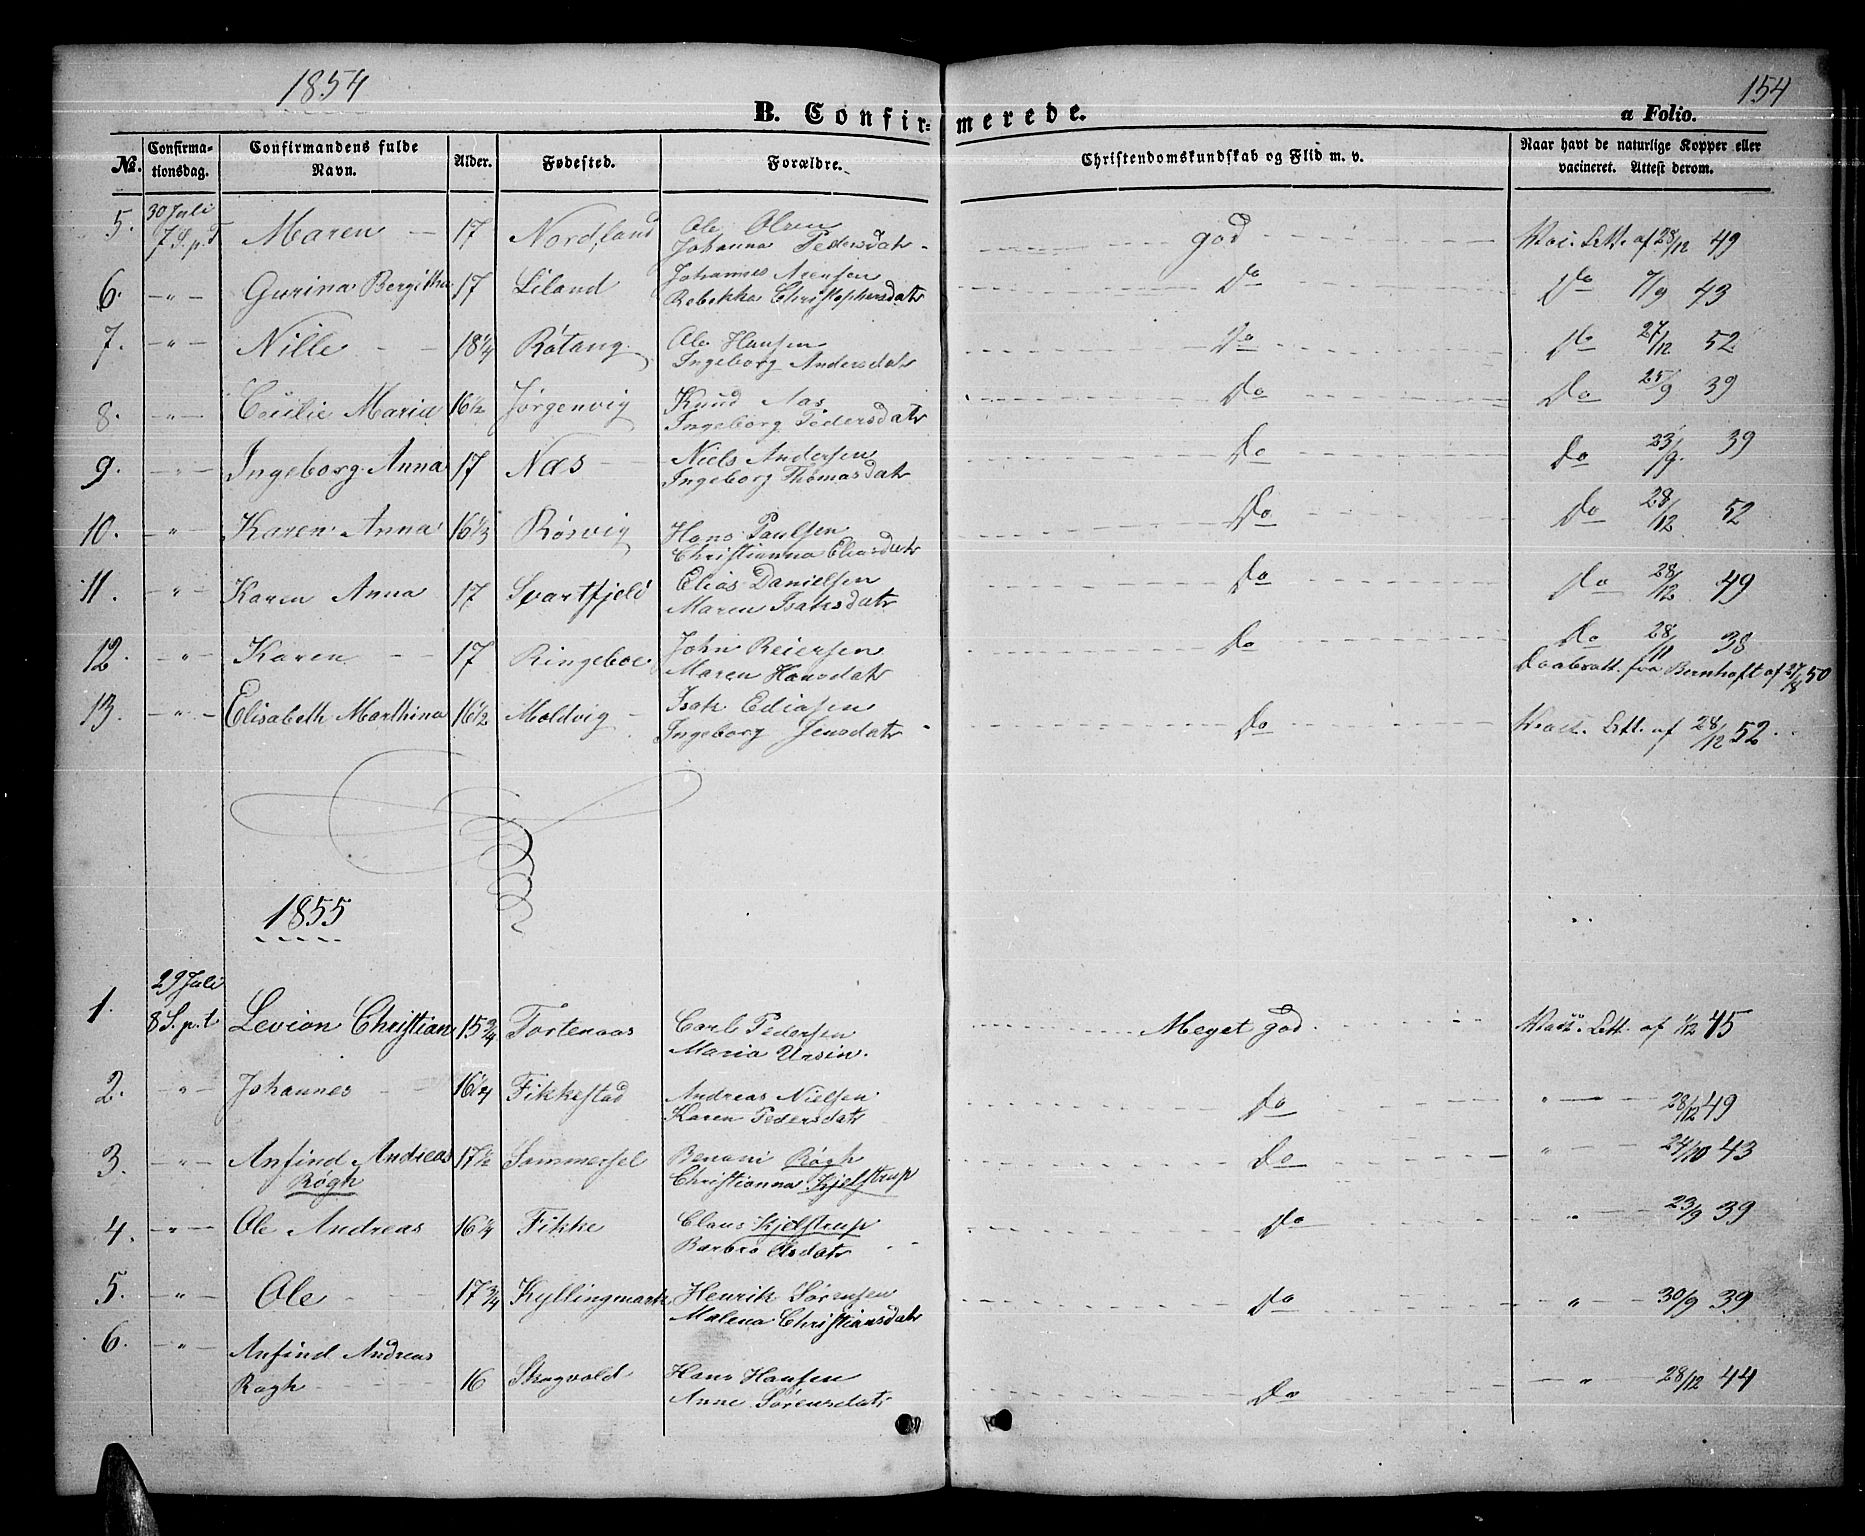 1854
154
B. Confir=merede.
a Folio.
No. Confirmationsdag. Confirmandens fulde Navn. Alder. Fødested. Forældre. Christendomskundskab og Flid m. v. Naar havt de naturlige Kopper eller vacineret. Attest derom.
5. 30 Juli 7 S. p. T Maren 17 Nordland Ole Olsen god Vac. Att. af 28/12 49
Johanna Pedersdatr
6. -"- Gurina Bergitha 17 Liland Johannes Arensen Do Do 7/9 43
Rebekka Christophersdatr
7. -"- Nille 18 1/4 Røtang Ole Hansen Do Do 27/12 52
Ingeborg Andersdatr
8. -"- Cecilie Maria 16 1/2 Jørgenvig Knud Aas Do Do 25/9 39
Ingeborg Pedersdatr
9. -"- Ingeborg Anna 17 Næs Niels Andersen Do Do 23/9 39
Ingeborg Thomasdatr
10. -"- Karen Anna 16 1/3 Røsvig Hans Paulsen Do Do 28/12 52
Christianna Eliasdatr
11. -"- Karen Anna 17 Svartfjeld Elias Danielsen Do Do 28/12 49
Maren Isaksdatr
12. -"- Karen 17 Ringeboe John Reiersen Do Do 28/11 38
Maren Hansdatr Daabsatt. fra Bernhoft af 27/18 50
13. -"- Elisabeth Marthina 16 1/2 Moldvig Isak Ediasen Do Vacc. Att. af 28/12 52
Ingeborg Jensdatr
1855
1. 29 Juli 8 S. p. t Levion Christian 15 3/4 Tortenaas Carl Pedersen Meget god Vacc. Att. af 1/12 45
Maria Ursin.
2. -"- Johannes 16 1/4 Fikkestad Andreas Nielsen Do " 28/12 49
Karen Pedersdatr
3. -"- Anfind Andreas 17 1/2 Sommersel Benoni Røgh Do " 24/10 43
Røgh Christianna Kjelstrup
4. -"- Ole Andreas 16 1/4 Fikke Claus Kjelstrup Do " 23/9 39
Barbro Olsdatr
5. -"- Ole 17 3/4 Kyllingmark Henrik Sørensen Do " 30/9 39
Malena Christiansdatr
6. -"- Anfind Andreas
Røgh 16 Skogvold Hans Hansen Do " 28/12 44
Anne Sørensdatr